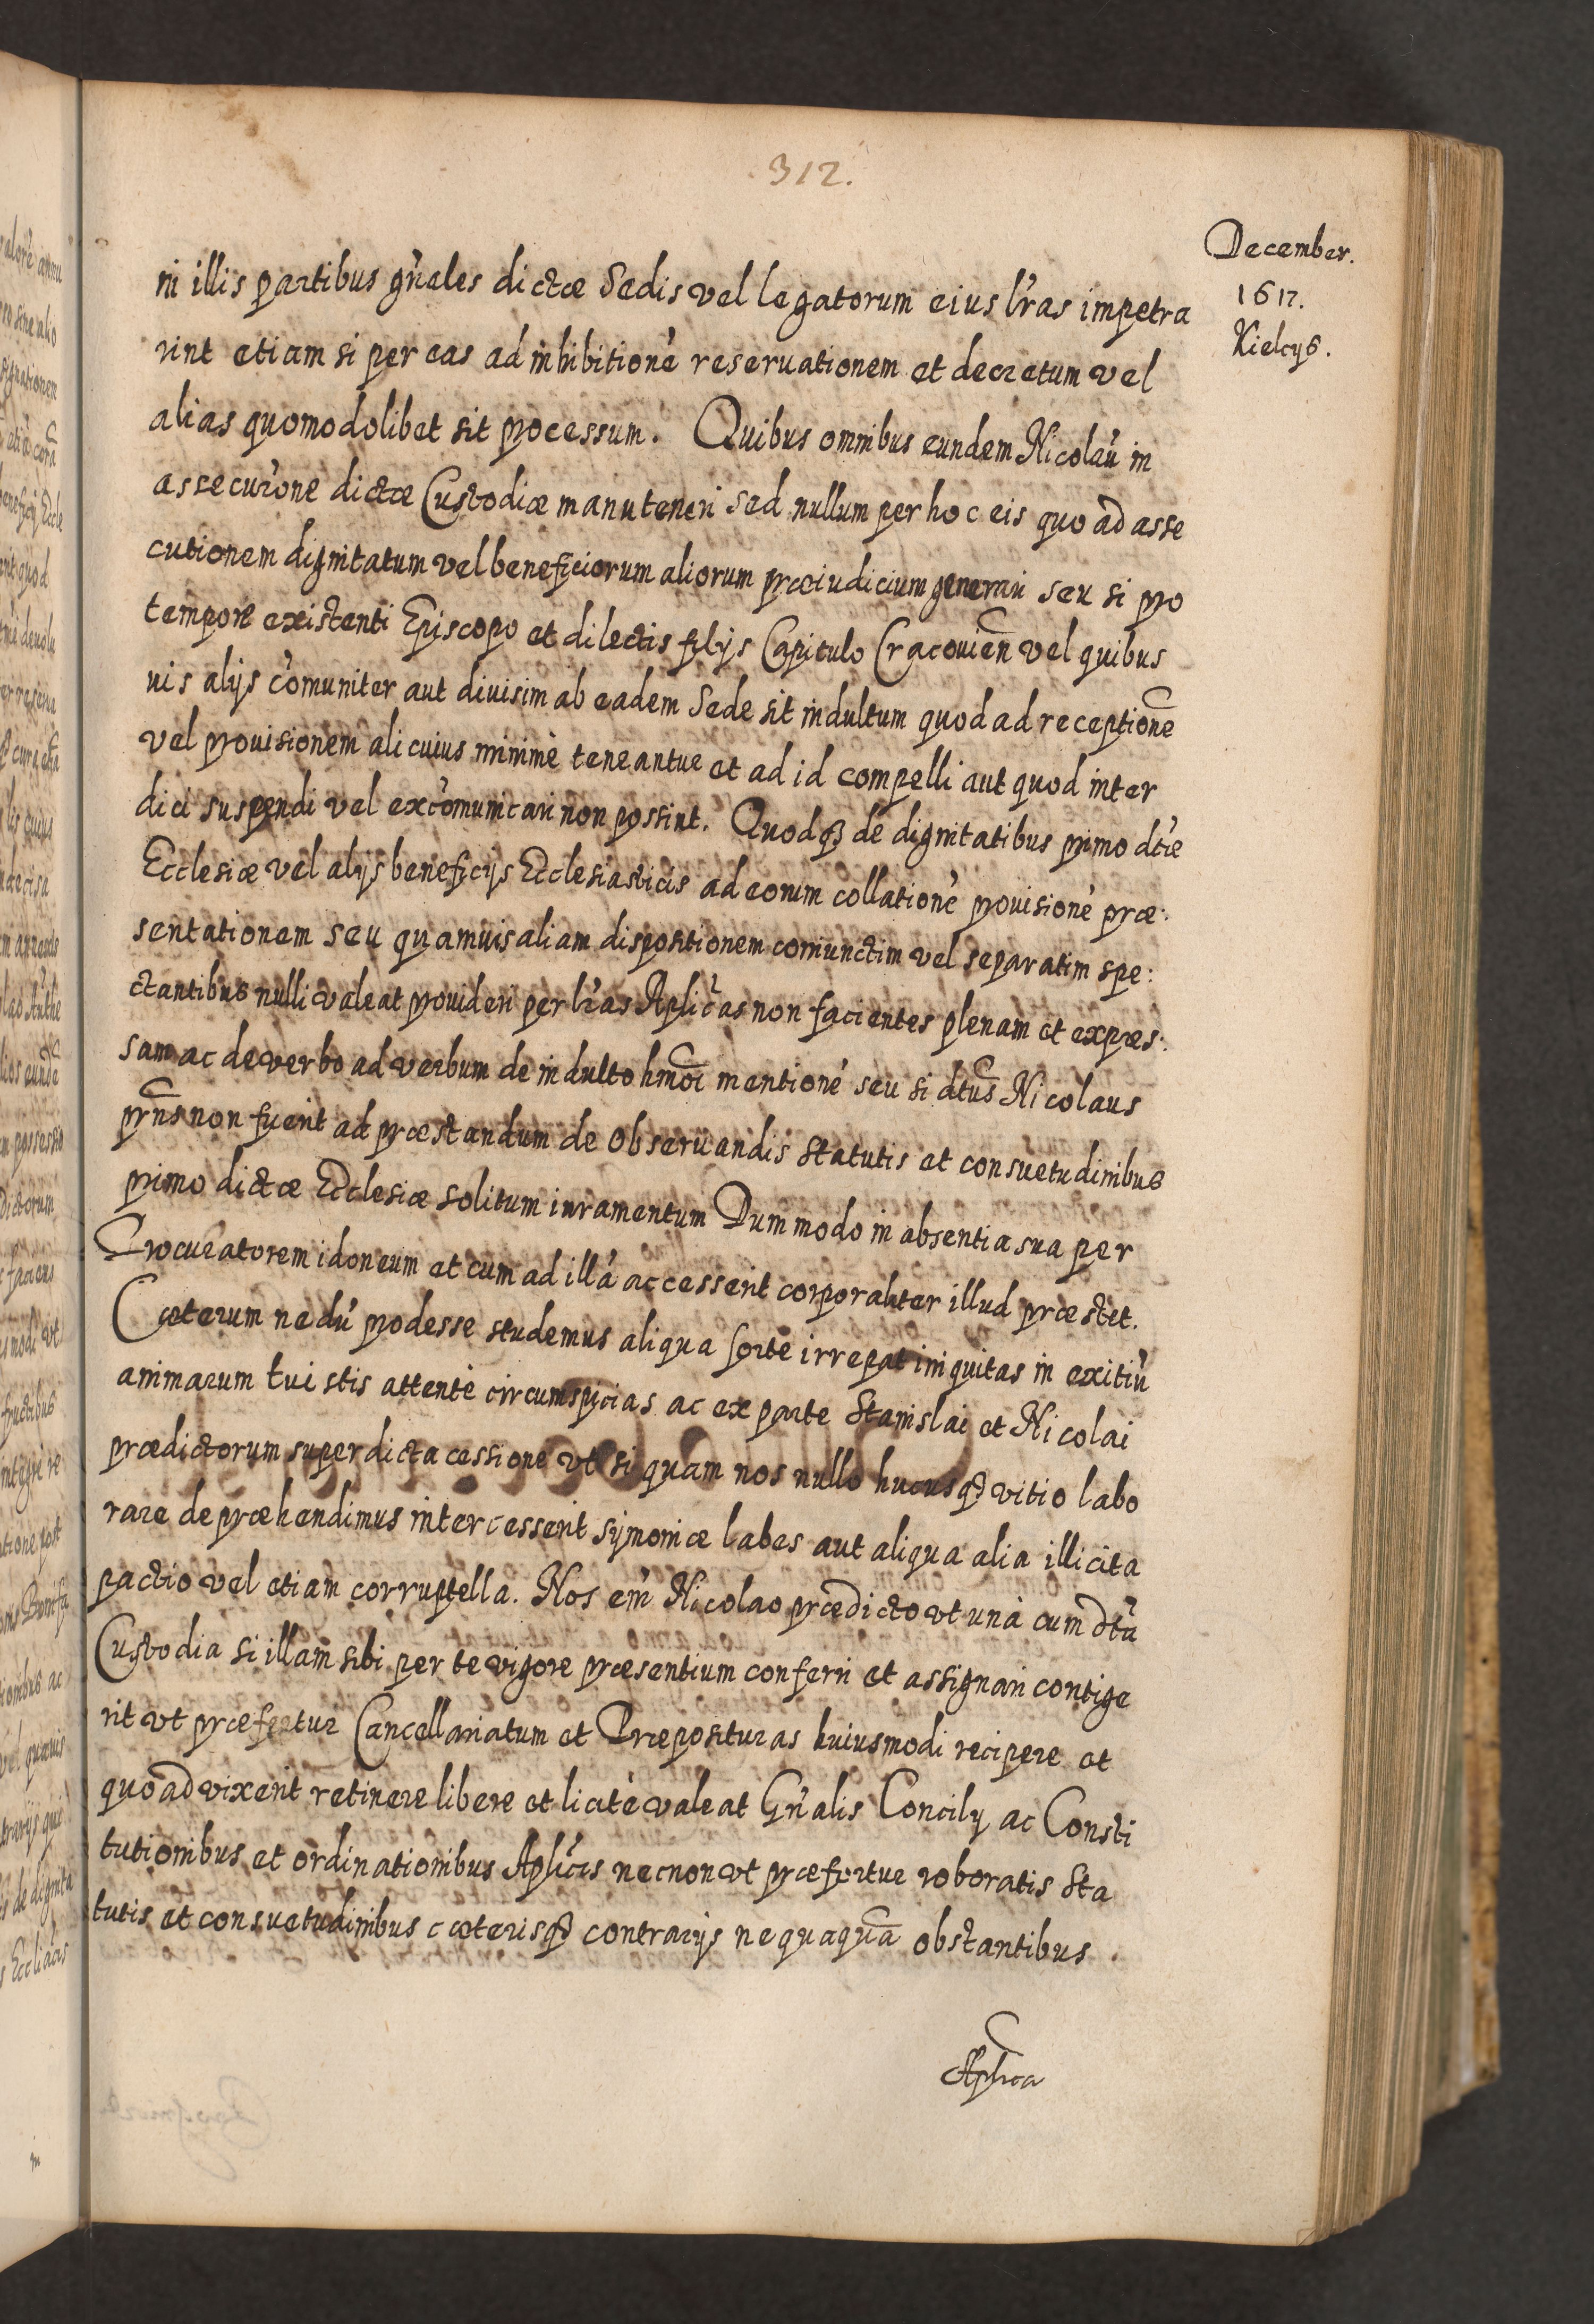 312.
December.
1617.
Kielcys.
in illis partibus gn̄ales dictæ Sedis vel legatorum eius lr̄as impetra
rint etiam si per eas ad inhibitionē reseruationem et decretum vel
alias quomodolibet sit processum. Quibus omnibus eundem Nicolaū in
assecur̄one dictæ Custodiæ manuteneri sed nullum per hoc eis quo ad asse
cutionem dignitatum vel beneficiorum aliorum præiudicium generari seu si pro
tempore existenti Episcopo et dilectis filijs Capitulo Cracouien̄ vel quibus
uis alijs cōmuniter aut diuisim ab eadem Sede sit indultum quod ad receptionē
vel prouisionem alicuius minimè teneantur et ad id compelli aut quod inter
dici suspendi vel excōmunicari non possint. Quodq3 de dignitatibus primo dc̄æ
Ecclesiæ vel alijs beneficijs Ecclesiasticis ad eorum collationē prouisionē præ:
sentationem seu quamuis aliam dispositionem coniunctim vel separatim spe:
ctantibus nulli valeat prouideri per lr̄as Aplic̄as non facientes plenam et expres:
sam ac de verbo ad verbum de indulto hm̄oi mentionē seu si dc̄tus Nicolaus
pr̄ns non fuerit ad præstandum de obseruandis statutis et consuetudinibus
primo dictæ Ecclesiæ solitum iuramentum Dummodo in absentia sua per
Procuratorem idoneum et cum ad illā accesserit corporaliter illud præstet.
Cæterum nedū prodesse studemus aliqua forte irrepat iniquitas in exitiū
animarum tui stis attentè circumspicias ac ex parte Stanislai et Nicolai
prædictorum super dicta cessione vt si quam nos nullo hucusq3 vitio labo
rare depræhendimus intercesserit symoniæ labes aut aliqua alia illicita
pactio vel etiam corruptella. Nos em̄ Nicolao prædicto vt unà cum dc̄ta
Custodia si illam sibi per te vigore præsentium conferri et assignari contige
rit vt præfertur Cancellariatum et Præposituras huiusmodi recipere et
quo ad vixerit retinere libere et licitè valeat Gn̄alis Concilij ac Consti
tutionibus et ordinationibus Aplic̄is necnon vt præfertur roboratis sta
tutis et consuetudinibus cæterisq3 contrarijs nequaquā obstantibus
Aplica